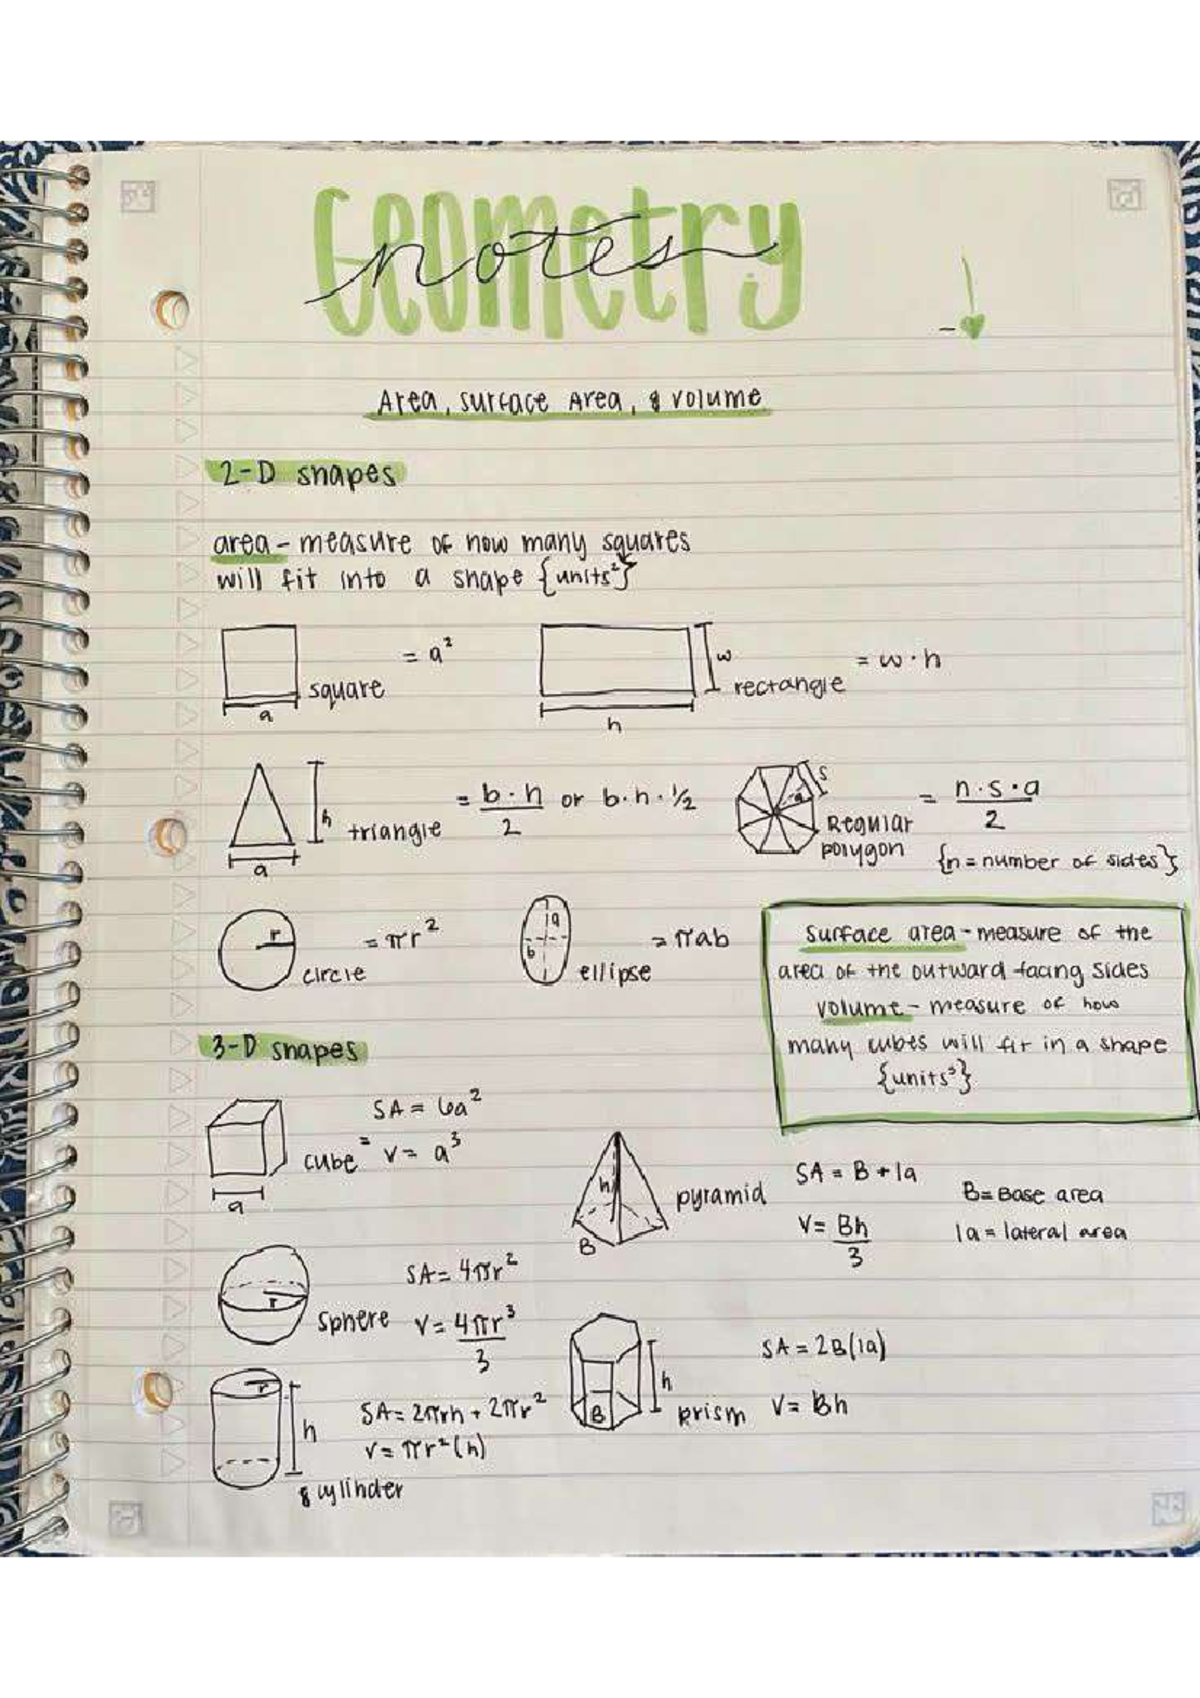 Geometry
notes
Area, surface Area, & volume
2-D shapes
area - measure of how many squares
will fit into a shape {units²}
square
a
= a²
rectangle
w
h
= w · h
triangle
h
a
= b · h / 2 or b · h · ½
Regular
polygon
s
a
= n · s · a / 2
{n = number of sides}
circle
r
= πr²
ellipse
a
b
= πab
surface area - measure of the
area of the outward facing sides
volume - measure of how
many cubes will fit in a shape
{units³}
3-D shapes
a
cube =
SA = 6a²
V = a³
h
B
pyramid
SA = B + la
V = Bh / 3
B = Base area
la = lateral area
r
sphere
SA = 4πr²
V = 4πr³ / 3
h
B
prism
SA = 2B(la)
V = Bh
r
h
& cylinder
SA = 2πrh + 2πr²
V = πr²(h)